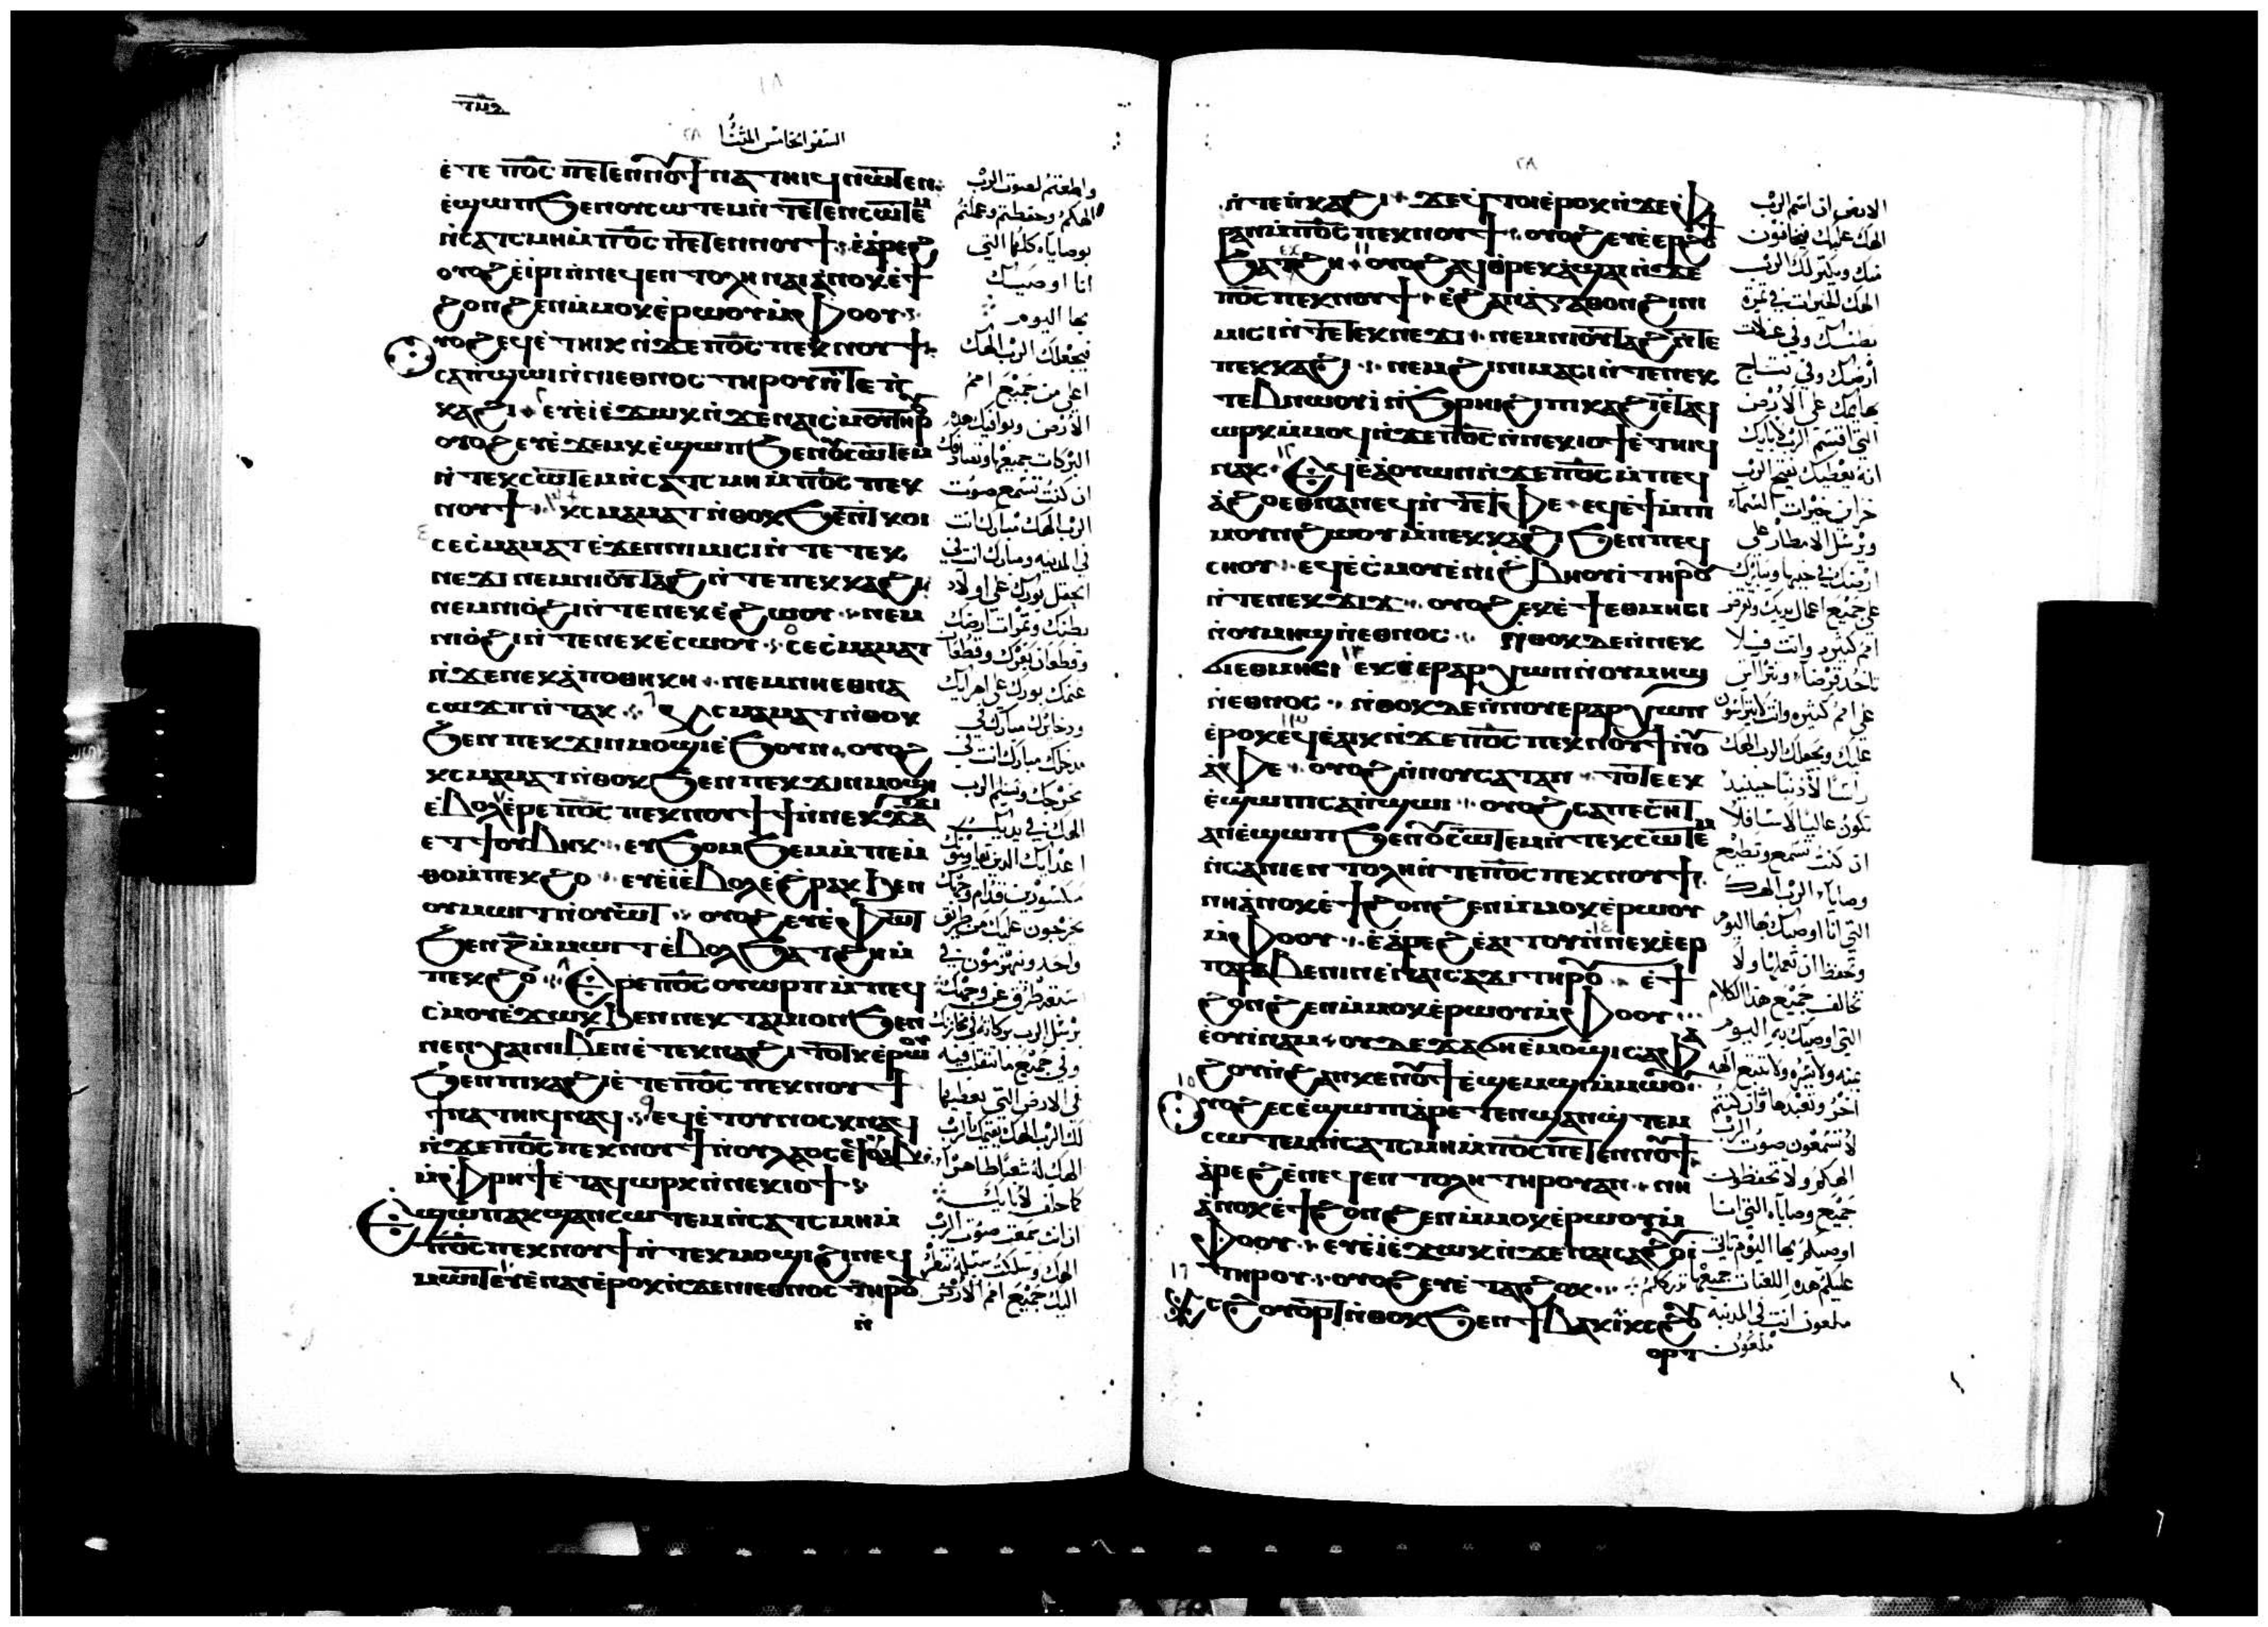 السفر الخامس المثنا
ⲉⲧⲉ ⲡⲟ̅ⲥ̅ ⲡⲉⲧⲉⲛⲛⲟⲩϯ ⲛⲁⲧⲏⲓϥ ⲛⲱⲧⲉⲛ
ⲉϣⲱⲡ ϧⲉⲛ ⲟⲩⲥⲱⲧⲉⲙ ⲛ̀ⲧⲉⲧⲉⲛⲥⲱⲧⲉⲙ
ⲛ̀ⲥⲁ ⲧ̀ⲥⲙⲏ ⲙ̀ⲡⲟ̅ⲥ̅ ⲡⲉⲧⲉⲛⲛⲟⲩϯ ⲉ̀ⲁ̀ⲣⲉϩ
ⲟⲩⲟϩ ⲉ̀ⲓ̀ⲣⲓ ⲛ̀ⲛⲉϥⲉⲛⲧⲟⲗⲏ ⲛⲁⲓ ⲁ̀ⲛⲟⲕ ⲉ̀ϯ
ϩⲟⲛϩⲉⲛ ⲙ̀ⲙⲟⲕ ⲉ̀ⲣⲱⲟⲩ ⲙ̀ⲫⲟⲟⲩ
ⲟⲩⲟϩ ⲉϥⲉ̀ⲧⲏⲓⲕ ⲛ̀ϫⲉ ⲡⲟ̅ⲥ̅ ⲡⲉⲕⲛⲟⲩϯ
ⲥⲁⲡ̀ϣⲱⲓ ⲛ̀ⲛⲓⲉⲑⲛⲟⲥ ⲧⲏⲣⲟⲩ ⲛ̀ⲧⲉ ⲡ̀
ⲕⲁϩⲓ ⲉⲩⲉ̀ⲓ̀ ⲉ̀ϫⲱⲕ ⲛ̀ϫⲉ ⲛⲁⲓⲥ̀ⲙⲟⲩ ⲧⲏⲣⲟⲩ
ⲟⲩⲟϩ ⲉⲩⲉ̀ϫⲉⲙⲕ ⲉ̀ϣⲱⲡ ϧⲉⲛ ⲟⲩⲥⲱⲧⲉⲙ
ⲛ̀ⲧⲉⲕⲥⲱⲧⲉⲙ ⲛ̀ⲥⲁ ⲧ̀ⲥⲙⲏ ⲙ̀ⲡⲟ̅ⲥ̅ ⲡⲉⲕ
ⲛⲟⲩϯ ⲕ̀ⲥⲙⲁⲙⲁⲧ ⲛ̀ⲑⲟⲕ ϧⲉⲛ ⲧ̀ⲕⲟⲓ
ⲥⲉⲥ̀ⲙⲁⲙⲁⲧ ⲉ̀ϫⲉⲛ ⲛⲓⲙⲓⲥⲓ ⲛ̀ⲧⲉ ⲧⲉⲕ
ⲛⲉϫⲓ ⲛⲉⲙ ⲛⲓⲟⲩⲧⲁϩ ⲛ̀ⲧⲉ ⲡⲉⲕⲕⲁϩⲓ
ⲛⲉⲙ ⲛⲓⲟ̀ϩⲓ ⲛ̀ⲧⲉ ⲛⲉⲕⲉ̀ϩⲱⲟⲩ ⲛⲉⲙ
ⲛⲓⲟ̀ϩⲓ ⲛ̀ⲧⲉ ⲛⲉⲕⲉ̀ⲥⲱⲟⲩ ⲥⲉⲥ̀ⲙⲁⲙⲁⲧ
ⲛ̀ϫⲉ ⲛⲉⲕⲁ̀ⲡⲟⲑⲏⲕⲏ ⲛⲉⲙ ⲛⲏⲉⲑⲛⲁ
ⲥⲱϫⲡ ⲛ̀ⲧⲁⲕ ⲕ̀ⲥⲙⲁⲙⲁⲧ ⲛ̀ⲑⲟⲕ
ϧⲉⲛ ⲡⲉⲕϫⲓⲛⲙⲟϣⲓ ⲉ̀ϧⲟⲩⲛ ⲟⲩⲟϩ
ⲕ̀ⲥⲙⲁⲙⲁⲧ ⲛ̀ⲑⲟⲕ ϧⲉⲛ ⲡⲉⲕϫⲓⲛⲙⲟϣⲓ
ⲉ̀ⲃⲟⲗ ⲉ̀ⲣⲉ ⲡⲟ̅ⲥ̅ ⲡⲉⲕⲛⲟⲩϯ ϯ ⲛ̀ⲛⲉⲕϫⲁϫⲓ
ⲉⲧϯ ⲟⲩⲃⲏⲕ ⲉⲩϧⲟⲙϧⲉⲙ ⲙ̀ⲡⲉⲙ
ⲑⲟ ⲙ̀ⲡⲉⲕϩⲟ ⲉⲩⲉ̀ⲓ̀ ⲉ̀ⲃⲟⲗ ⲉ̀ϩⲣⲁⲕ ϧⲉⲛ
ⲟⲩⲙⲱⲓⲧ ⲛ̀ⲟⲩⲱⲧ ⲟⲩⲟϩ ⲉⲩⲉ̀ⲫⲱⲧ
ϧⲉⲛ ⲍ̅ ⲙ̀ⲙⲱⲓⲧ ⲉ̀ⲃⲟⲗ ϧⲁⲧϩⲏ ⲙ̀
ⲡⲉⲕϩⲟ ⲉ̀ⲣⲉ ⲡⲟ̅ⲥ̅ ⲟⲩⲱⲣⲡ ⲙ̀ⲡⲉϥ
ⲥⲙⲟⲩ ⲉ̀ϫⲱⲕ ϧⲉⲛ ⲛⲉⲕⲧⲁⲙⲓⲟⲛ ϧⲉⲛ
ⲛⲉⲛⲭⲁⲓ ⲛⲓⲃⲉⲛ ⲉ̀ⲧⲉⲕⲛⲁϩⲓⲧⲟⲧⲕ ⲉ̀ⲣⲱⲟⲩ
ϧⲉⲛ ⲡⲓⲕⲁϩⲓ ⲉ̀ⲧⲉ ⲡⲟ̅ⲥ̅ ⲡⲉⲕⲛⲟⲩϯ
ⲛⲁⲧⲏⲓϥ ⲛⲁⲕ ⲉϥⲉ̀ⲧⲟⲩⲛⲟⲥⲕ ⲛⲁϥ
ⲛ̀ϫⲉ ⲡⲟ̅ⲥ̅ ⲡⲉⲕⲛⲟⲩϯ ⲛ̀ⲟⲩⲗⲁⲟⲥ ⲉϥⲟⲩⲁⲃ
ⲙ̀ⲫⲣⲏϯ ⲉ̀ⲧⲁϥⲱⲣⲕ ⲛ̀ⲛⲉⲕⲓⲟϯ
ⲉϣⲱⲡ ⲁⲕϣⲁⲛⲥⲱⲧⲉⲙ ⲛ̀ⲥⲁ ⲧ̀ⲥⲙⲏ ⲙ̀
ⲡⲟ̅ⲥ̅ ⲡⲉⲕⲛⲟⲩϯ ⲛ̀ⲧⲉⲕⲙⲟϣⲓ ϩⲓ ⲛⲉϥ
ⲙⲱⲓⲧ ⲉⲩⲉ̀ⲛⲁⲩ ⲉ̀ⲣⲟⲕ ⲛ̀ϫⲉ ⲛⲓⲉⲑⲛⲟⲥ ⲧⲏⲣⲟⲩ
ⲛ̀
واطعتم لصوت الرب
الهكم وحفظتم وعملتم
بوصاياه كلها التي
انا اوصيك
بها اليوم
فيجعلك الرب الهك
اعلي من جميع امم
الارض وتوافيك هذه
البركات جميعها
ان كنت تسمع صوت
الرب الهك مبارك انت
في المدينه ومبارك انت في
الحقل بورك علي اولاد
بطنك وثمرات ارضك
وقطعان بقرك وقطعان
غنمك بورك علي اهرايك
وذخايرك مبارك في
مدخلك مبارك انت في
مخرجك ويسلم الرب
الهك في يديك
اعدايك الذين
مكسورين قدام وجهك
يخرجون عليك من طريق
واحد وينهزمون في
سبعه طرق عن وجهك
يرسل الرب بركاته في مخازنك
وفي جميع ما
في الارض التي يعطيها
لك الرب الهك يقيمك الرب
الهك له شعبا طاهرا
كما حلف لابايك
ان انت سمعت صوت الرب
الهك وسلكت سبله تنظر
اليك جميع امم الارض
ⲛ̀ⲧⲉ ⲡ̀ⲕⲁϩⲓ ϫⲉ ⲥ̀ⲧⲟⲓ ⲉ̀ⲣⲟⲕ ⲛ̀ϫⲉ ⲫ̀
ⲣⲁⲛ ⲙ̀ⲡⲟ̅ⲥ̅ ⲡⲉⲕⲛⲟⲩϯ ⲟⲩⲟϩ ⲉⲩⲉ̀ⲉⲣϩⲟϯ
ϧⲁⲧⲉⲕϩⲏ ⲟⲩⲟϩ ⲉϥⲑⲣⲉⲕⲁ̀ϣⲁⲓ ⲛ̀ϫⲉ
ⲡⲟ̅ⲥ̅ ⲡⲉⲕⲛⲟⲩϯ ⲉ̀ϩⲁⲛⲁ̀ⲅⲁⲑⲟⲛ ϩⲓ ⲛⲓ
ⲙⲓⲥⲓ ⲛ̀ⲧⲉ ⲧⲉⲕⲛⲉϫⲓ ⲛⲉⲙ ⲛⲓⲟⲩⲧⲁϩ ⲛ̀ⲧⲉ
ⲡⲉⲕⲕⲁϩⲓ ⲛⲉⲙ ϩⲓ ⲛⲓⲙⲁⲥⲓ ⲛ̀ⲧⲉ ⲛⲉⲕ
ⲧⲉⲃⲛⲱⲟⲩⲓ ⲛ̀ϩⲣⲏⲓ ϩⲓ ⲡⲓⲕⲁϩⲓ ⲉ̀ⲧⲁϥ
ⲱⲣⲕ ⲙ̀ⲙⲟϥ ⲛ̀ϫⲉ ⲡⲟ̅ⲥ̅ ⲛ̀ⲛⲉⲕⲓⲟϯ ⲉ̀ⲧⲏⲓϥ
ⲛⲁⲕ ⲉϥⲉ̀ⲁⲟⲩⲱⲛ ⲛ̀ϫⲉ ⲡⲟ̅ⲥ̅ ⲙ̀ⲡⲉϥ
ⲁ̀ϩⲟ ⲉⲑⲛⲁⲛⲉϥ ⲛ̀ⲧⲉ ⲧ̀ⲫⲉ ⲉϥⲉ̀ϯ ⲙ̀ⲡⲓ
ⲙⲟⲩⲛ̀ϩⲱⲟⲩ ⲙ̀ⲡⲉⲕⲕⲁϩⲓ ϧⲉⲛ ⲡⲉϥ
ⲥⲏⲟⲩ ⲉϥⲉ̀ⲥ̀ⲙⲟⲩ ⲉ̀ⲛⲓϩⲃⲏⲟⲩⲓ ⲧⲏⲣⲟⲩ
ⲛ̀ⲧⲉ ⲛⲉⲕϫⲓϫ ⲟⲩⲟϩ ⲉⲕⲉ̀ϯ ⲉⲑⲙⲏⲥⲓ
ⲛ̀ⲟⲩⲙⲏϣ ⲛ̀ⲉⲑⲛⲟⲥ ⲛ̀ⲑⲟⲕ ϫⲉ ⲛ̀ⲛⲉⲕ
ϭⲓ ⲉⲑⲙⲏⲥⲓ ⲉⲕⲉ̀ⲉⲣⲁⲣⲭⲱⲛ ⲛ̀ⲟⲩⲙⲏϣ
ⲛ̀ⲉⲑⲛⲟⲥ ⲛ̀ⲑⲟⲕ ϫⲉ ⲛ̀ⲛⲟⲩⲉⲣⲁⲣⲭⲱⲛ
ⲉ̀ⲣⲟⲕ ⲉϥⲉ̀ⲁⲓⲕ ⲛ̀ϫⲉ ⲡⲟ̅ⲥ̅ ⲡⲉⲕⲛⲟⲩϯ ⲛ̀ⲟⲩ
ⲁ̀ⲫⲉ ⲟⲩⲟϩ ⲛ̀ⲛⲟⲩⲥⲁ ⲧⲁⲛ ⲧⲟⲧⲉ ⲉⲕ
ⲉ̀ϣⲱⲡⲓ ⲥⲁⲡ̀ϣⲱⲓ ⲟⲩⲟϩ ⲥⲁⲡⲉⲥⲏⲧ
ⲁⲛ ⲉ̀ϣⲱⲡ ϧⲉⲛ ⲟⲩⲥⲱⲧⲉⲙ ⲛ̀ⲧⲉⲕⲥⲱⲧⲉⲙ
ⲛ̀ⲥⲁ ⲛⲓⲉⲛⲧⲟⲗⲏ ⲛ̀ⲧⲉ ⲡⲟ̅ⲥ̅ ⲡⲉⲕⲛⲟⲩϯ
ⲛⲏ ⲁ̀ⲛⲟⲕ ⲉ̀ϯϩⲟⲛϩⲉⲛ ⲙ̀ⲙⲟⲕ ⲉ̀ⲣⲱⲟⲩ
ⲙ̀ⲫⲟⲟⲩ ⲉ̀ⲁ̀ⲣⲉϩ ⲉ̀ⲁⲓⲧⲟⲩ ⲛ̀ⲛⲉⲕⲉ̀ⲉⲣ
ⲡⲁⲣⲁⲃⲉⲛⲓⲛ ⲉ̀ⲛⲁⲓⲥⲁϫⲓ ⲧⲏⲣⲟⲩ ⲉ̀ϯ
ϩⲟⲛϩⲉⲛ ⲙ̀ⲙⲟⲕ ⲉ̀ⲣⲱⲟⲩ ⲙ̀ⲫⲟⲟⲩ
ⲉ̀ⲟⲩⲓ̀ⲛⲁⲙ ⲟⲩⲇⲉ ϫⲁϭⲏ ⲉ̀ⲙⲟϣⲓ ⲥⲁⲫⲁ
ϩⲟⲩ ⲛ̀ϩⲁⲛⲕⲉⲛⲟⲩϯ ⲉ̀ϣⲉⲙϣⲓ ⲙ̀ⲙⲱⲟⲩ
ⲟⲩⲟϩ ⲉⲥⲉ̀ϣⲱⲡⲓ ⲁ̀ⲣⲉⲧⲉⲛϣⲁⲛϣ̀ⲧⲉⲙ
ⲥⲱⲧⲉⲙ ⲛ̀ⲥⲁ ⲧ̀ⲥⲙⲏ ⲙ̀ⲡⲟ̅ⲥ̅ ⲡⲉⲧⲉⲛⲛⲟⲩϯ
ⲁ̀ⲣⲉϩ ⲉ̀ⲛⲉϥⲉⲛⲧⲟⲗⲏ ⲧⲏⲣⲟⲩ ⲁⲛ ⲛⲏ
ⲁ̀ⲛⲟⲕ ⲉ̀ϯϩⲟⲛϩⲉⲛ ⲙ̀ⲙⲟⲕ ⲉ̀ⲣⲱⲟⲩ ⲙ̀
ⲫⲟⲟⲩ ⲉⲩⲉ̀ⲓ̀ ⲉ̀ϫⲱⲕ ⲛ̀ϫⲉ ⲛⲁⲓⲥⲁϩⲟⲩⲓ
ⲧⲏⲣⲟⲩ ⲟⲩⲟϩ ⲉⲩⲉ̀ⲧⲁϩⲟⲕ
ⲕ̀ⲥϩⲟⲩⲟⲣⲧ ⲛ̀ⲑⲟⲕ ϧⲉⲛ ϯⲃⲁⲕⲓ ⲕ̀ⲥϩⲟⲩ
ⲟⲣⲧ
الارض ان اسم الرب
الهك عليك فيخافون
منك ويكثر لك الرب
الهك الخيرات في ثمرة
بطنك وفي غلات
ارضك وفي نتاج
بهايمك علي الارض
التي اقسم الرب لابايك
انه يعطيك يفتح الرب
خزاين خيرات السماء
ويرسل الامطار علي
ارضك في حينها ويبارك
علي جميع اعمال يديك وتقرض
امم كثيره وانت فلا
تاخذ قرضا وتتراس
علي امم كثيره وانت لا يتراسون
عليك ويجعلك الرب الهك
راسا لا ذنبا حينيذ
تكون عاليا لا سافلا
ان كنت تسمع وتطيع
وصايا الرب الهك
التي انا اوصيك بها اليوم
وتحفظ ان تعملها ولا
تخالف جميع هذا الكلام
التي اوصيك به اليوم
يمنه ولا يسره ولا تتبع الهه
اخر وتعبدها وان كنتم
لا تسمعون صوت الرب
الهكم ولا تحفظوا
جميع وصاياه التي انا
اوصيكم بها اليوم تاتي
عليكم هذه اللعنات جميعها
ملعون انت في المدينه
ملعون